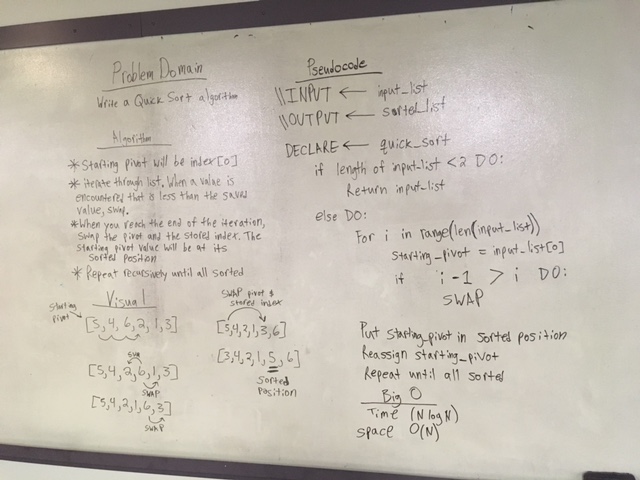 Problem Domain
Write a Quick Sort algorithm
Algorithm
* Starting pivot will be index[0]
* iterate through list. When a value is
encountered that is less than the saved
value, swap.
* When you reach the end of the iteration,
swap the pivot and the stored index. The
starting pivot value will be at its
sorted position
* Repeat recursively until all sorted
Visual
Starting
pivot
[5,4,6,2,1,3]
[5,4,2,6,1,3]
SWAP
[5,4,2,1,6,3]
SWAP
SWAP pivot &
stored index
[5,4,2,1,3,6]
[3,4,2,1,5,6]
Sorted
position
Pseudocode
\\INPUT ← input_list
\\OUTPUT ← sorted_list
DECLARE ← quick_sort
if length of input_list < 2 DO:
Return input_list
else DO:
For i in range(len(input_list))
starting_pivot = input_list[0]
if i-1 > i DO:
SWAP
Put starting_pivot in sorted position
Reassign starting_pivot
Repeat until all sorted
Big O
Time (N log N)
space O(N)